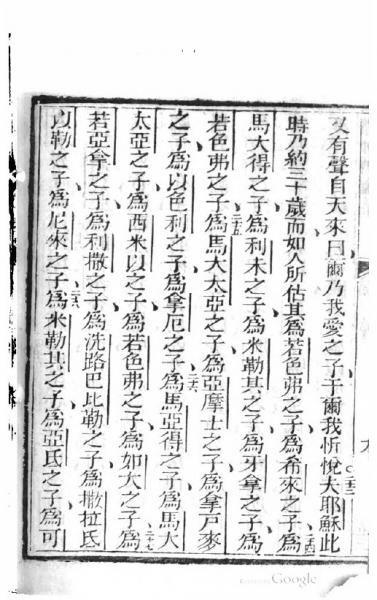 又有聲自天來曰爾乃我愛之子于爾我忻悅夫耶穌此
二三
時乃約三十歲而如人所估其為若色弗之子為希來之子為
二四
馬大得之子為利未之子為米勒其之子為牙拿之子為
二五
若色弗之子為馬大太亞之子為亞摩士之子為拿戶麥
之子為以色利之子為拿厄之子為馬亞得之子為馬大
二六
太亞之子為西米以之子為若色弗之子為如大之子為
二七
若亞拿之子為利撒之子為洗路巴比勒之子為撒拉氐
以勒之子為尼來之子為米勒其之子為亞氐之子為可
二八
Google